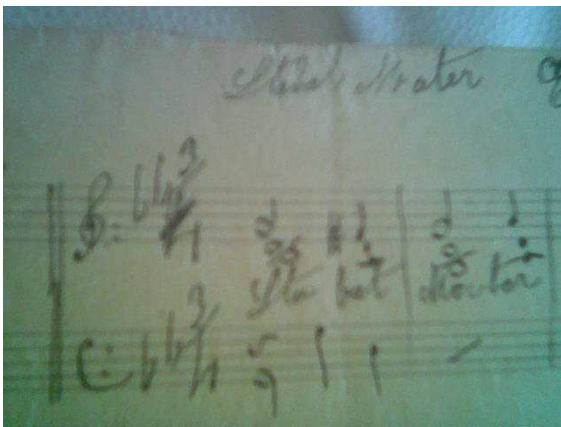 Stabat Mater
Sta bat Mater